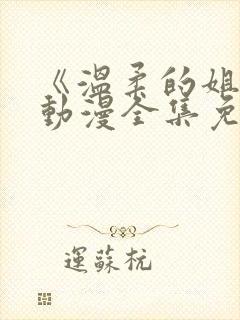 《温柔的姐
动漫全集免
运苏杭